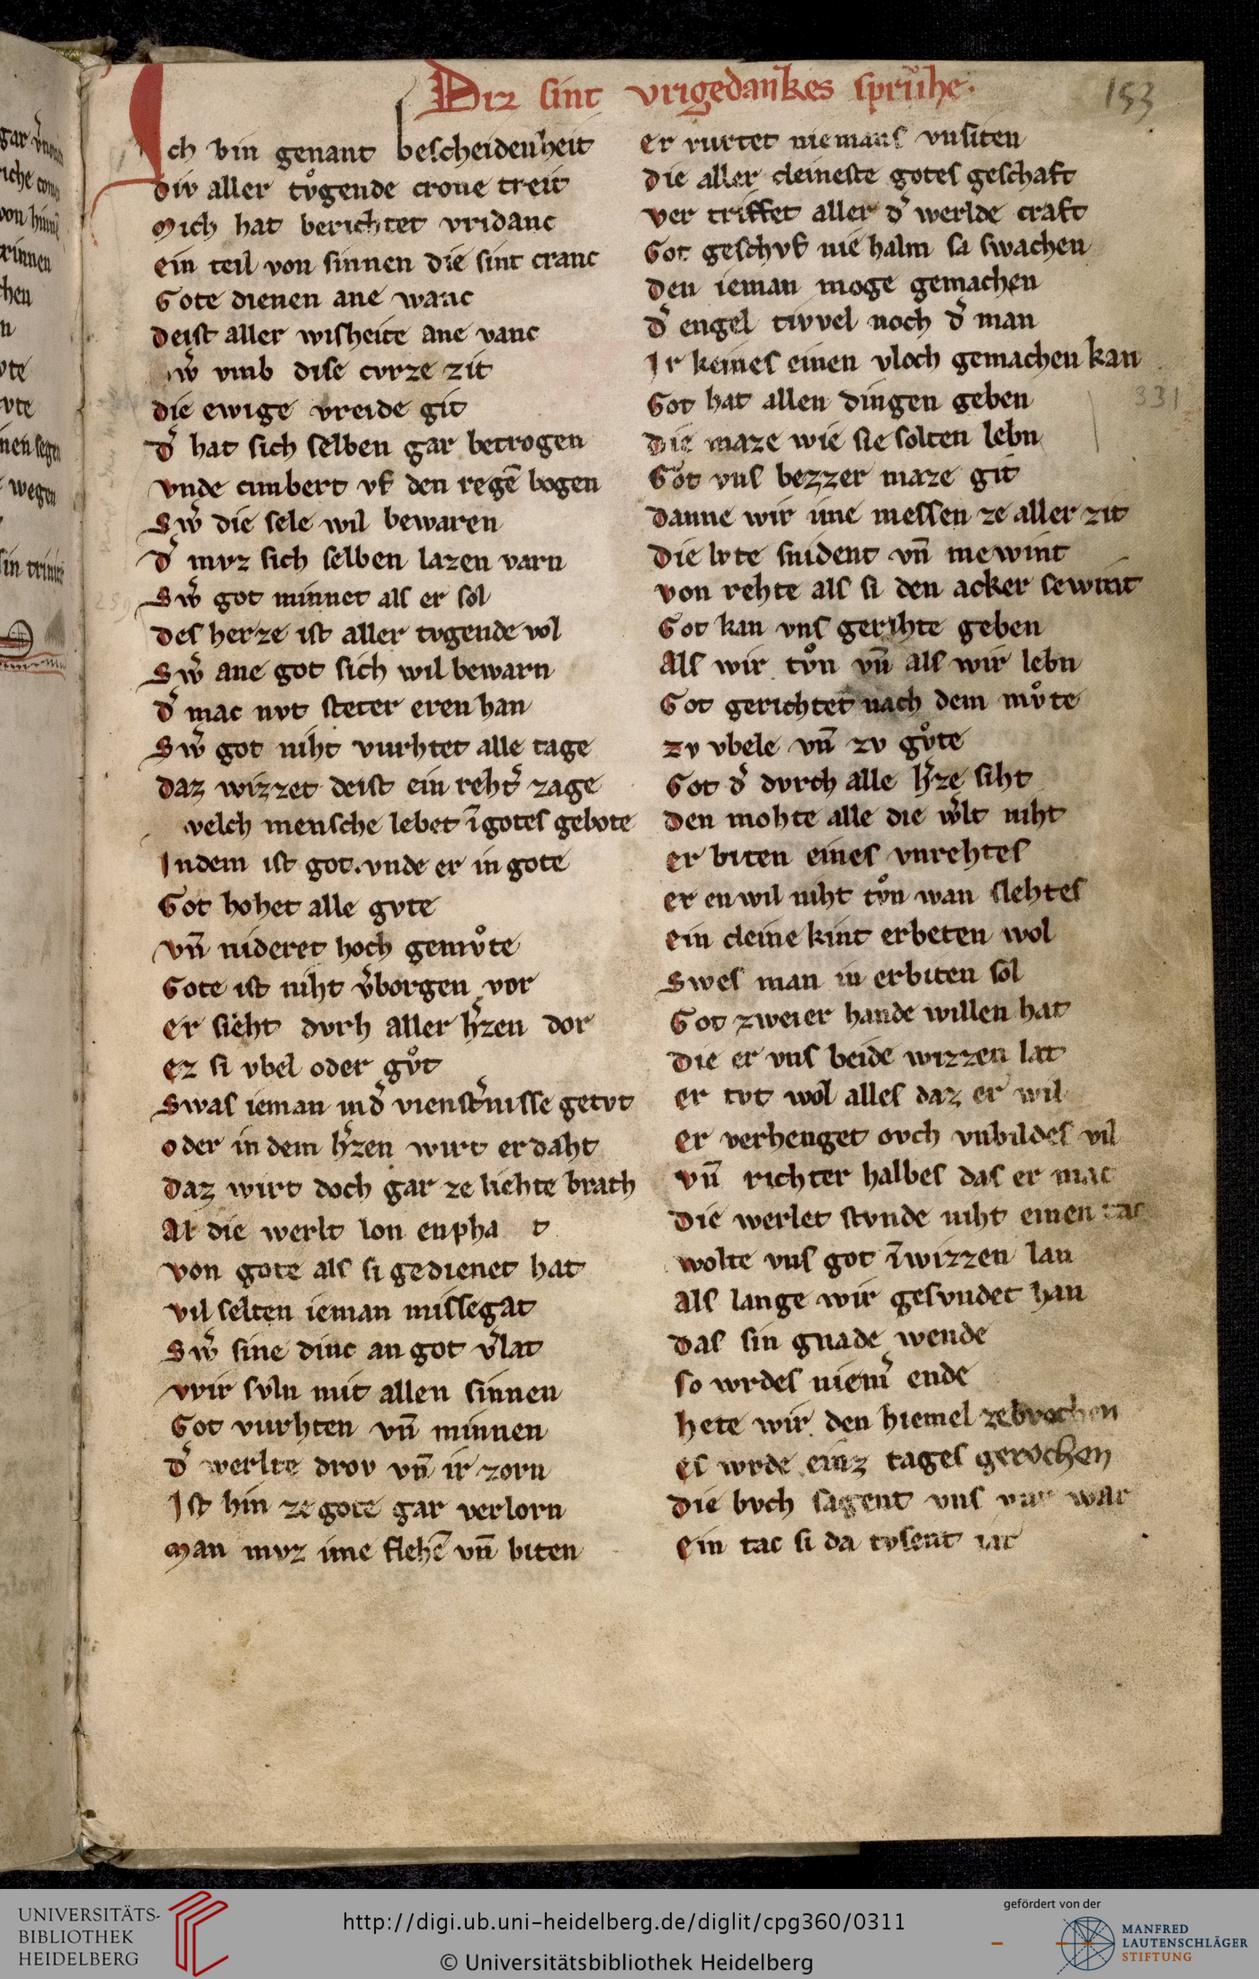 Diz sint vrigedankes sprůhe.
153
Ich bin genant bescheidenheit
div aller tvͦgende crone treit
Mich hat berichtet vridanc
ein teil von sinnen die sint cranc
Gote dienen ane wanc
deist aller wisheite ane vanc
vmb dise cvrze zit
die ewige vreide git
d' hat sich selben gar betrogen
vnde cimbert vf den regē bogen
Sw' die sele wil bewaren
d' mvz sich selben lazen varn
Sw' got minnet als er sol
des herze ist aller tvgende vol
Sw' ane got sich wil bewarn
d' mac nvt steter eren han
Sw' got niht vurhtet alle tage
daz wizzet deist ein reht' zage
welch mensche lebet ī gotes gebote
Indem ist got. vnde er in gote
Got hohet alle gvte
vn̄ nideret hoch gemvͦte
Gote ist niht v'borgen vor
er sieht dvrh aller h'zen dor
ez si vbel oder gvͦt
Swas ieman ind' vienst'nisse getvt
oder in dem h'zen wirt erdaht
daz wirt doch gar ze liehte brath
Al die werlt lon enpha t
von gote als si gedienet hat
vil selten ieman missegat
Sw' sine dinc an got v'lat
wir svln mit allen sinnen
Got vurhten vn̄ minnen
d' werlte drov vn̄ ir zorn
Ist hin ze gote gar verlorn
Man mvz ime flehē vn̄ biten
er vurtet niemans vnsiten
die aller cleineste gotes geschaft
ver triffet aller d' werlde craft
Got geschvf nie halm sa swachen
den ieman moge gemachen
d' engel tivvel noch d' man
Ir keines einen vloch gemachen kan
Got hat allen dingen geben
331
die maze wie sie solten lebn
Got vns bezzer maze git
danne wir ime messen ze aller zit
die lvte snident vn̄ mewint
von rehte als si den acker sewint
Got kan vns gerihte geben
Als wir tvͦn vn̄ als wir lebn
Got gerichtet nach dem mvͦte
zv vbele vn̄ zv gvͦte
Got d' dvrch alle h'ze siht
den mohte alle die w'lt niht
er biten eines vnrehtes
er en wil niht tvͦn wan slehtes
ein cleine kint erbeten wol
Swes man in erbiten sol
Got zweier hande willen hat
die er vns beide wizzen lat
er tvt wol alles daz er wil
er verhenget ovch vnbildes vil
vn̄ richter halbes das er mac
die werlet stvnde niht einen tac
wolte vns got ī wizzen lan
als lange wir gesvndet han
das sin gnade wende
so wrdes niem' ende
hete wir den hiemel zebrochen
es wrde einz tages gerochen
die bvch sagent vns war
ein tac si da tvsent iar
UNIVERSITÄTS-
BIBLIOTHEK
HEIDELBERG
http://digi.ub.uni-heidelberg.de/diglit/cpg360/0311
© Universitätsbibliothek Heidelberg
gefördert von der
MANFRED
LAUTENSCHLÄGER
STIFTUNG